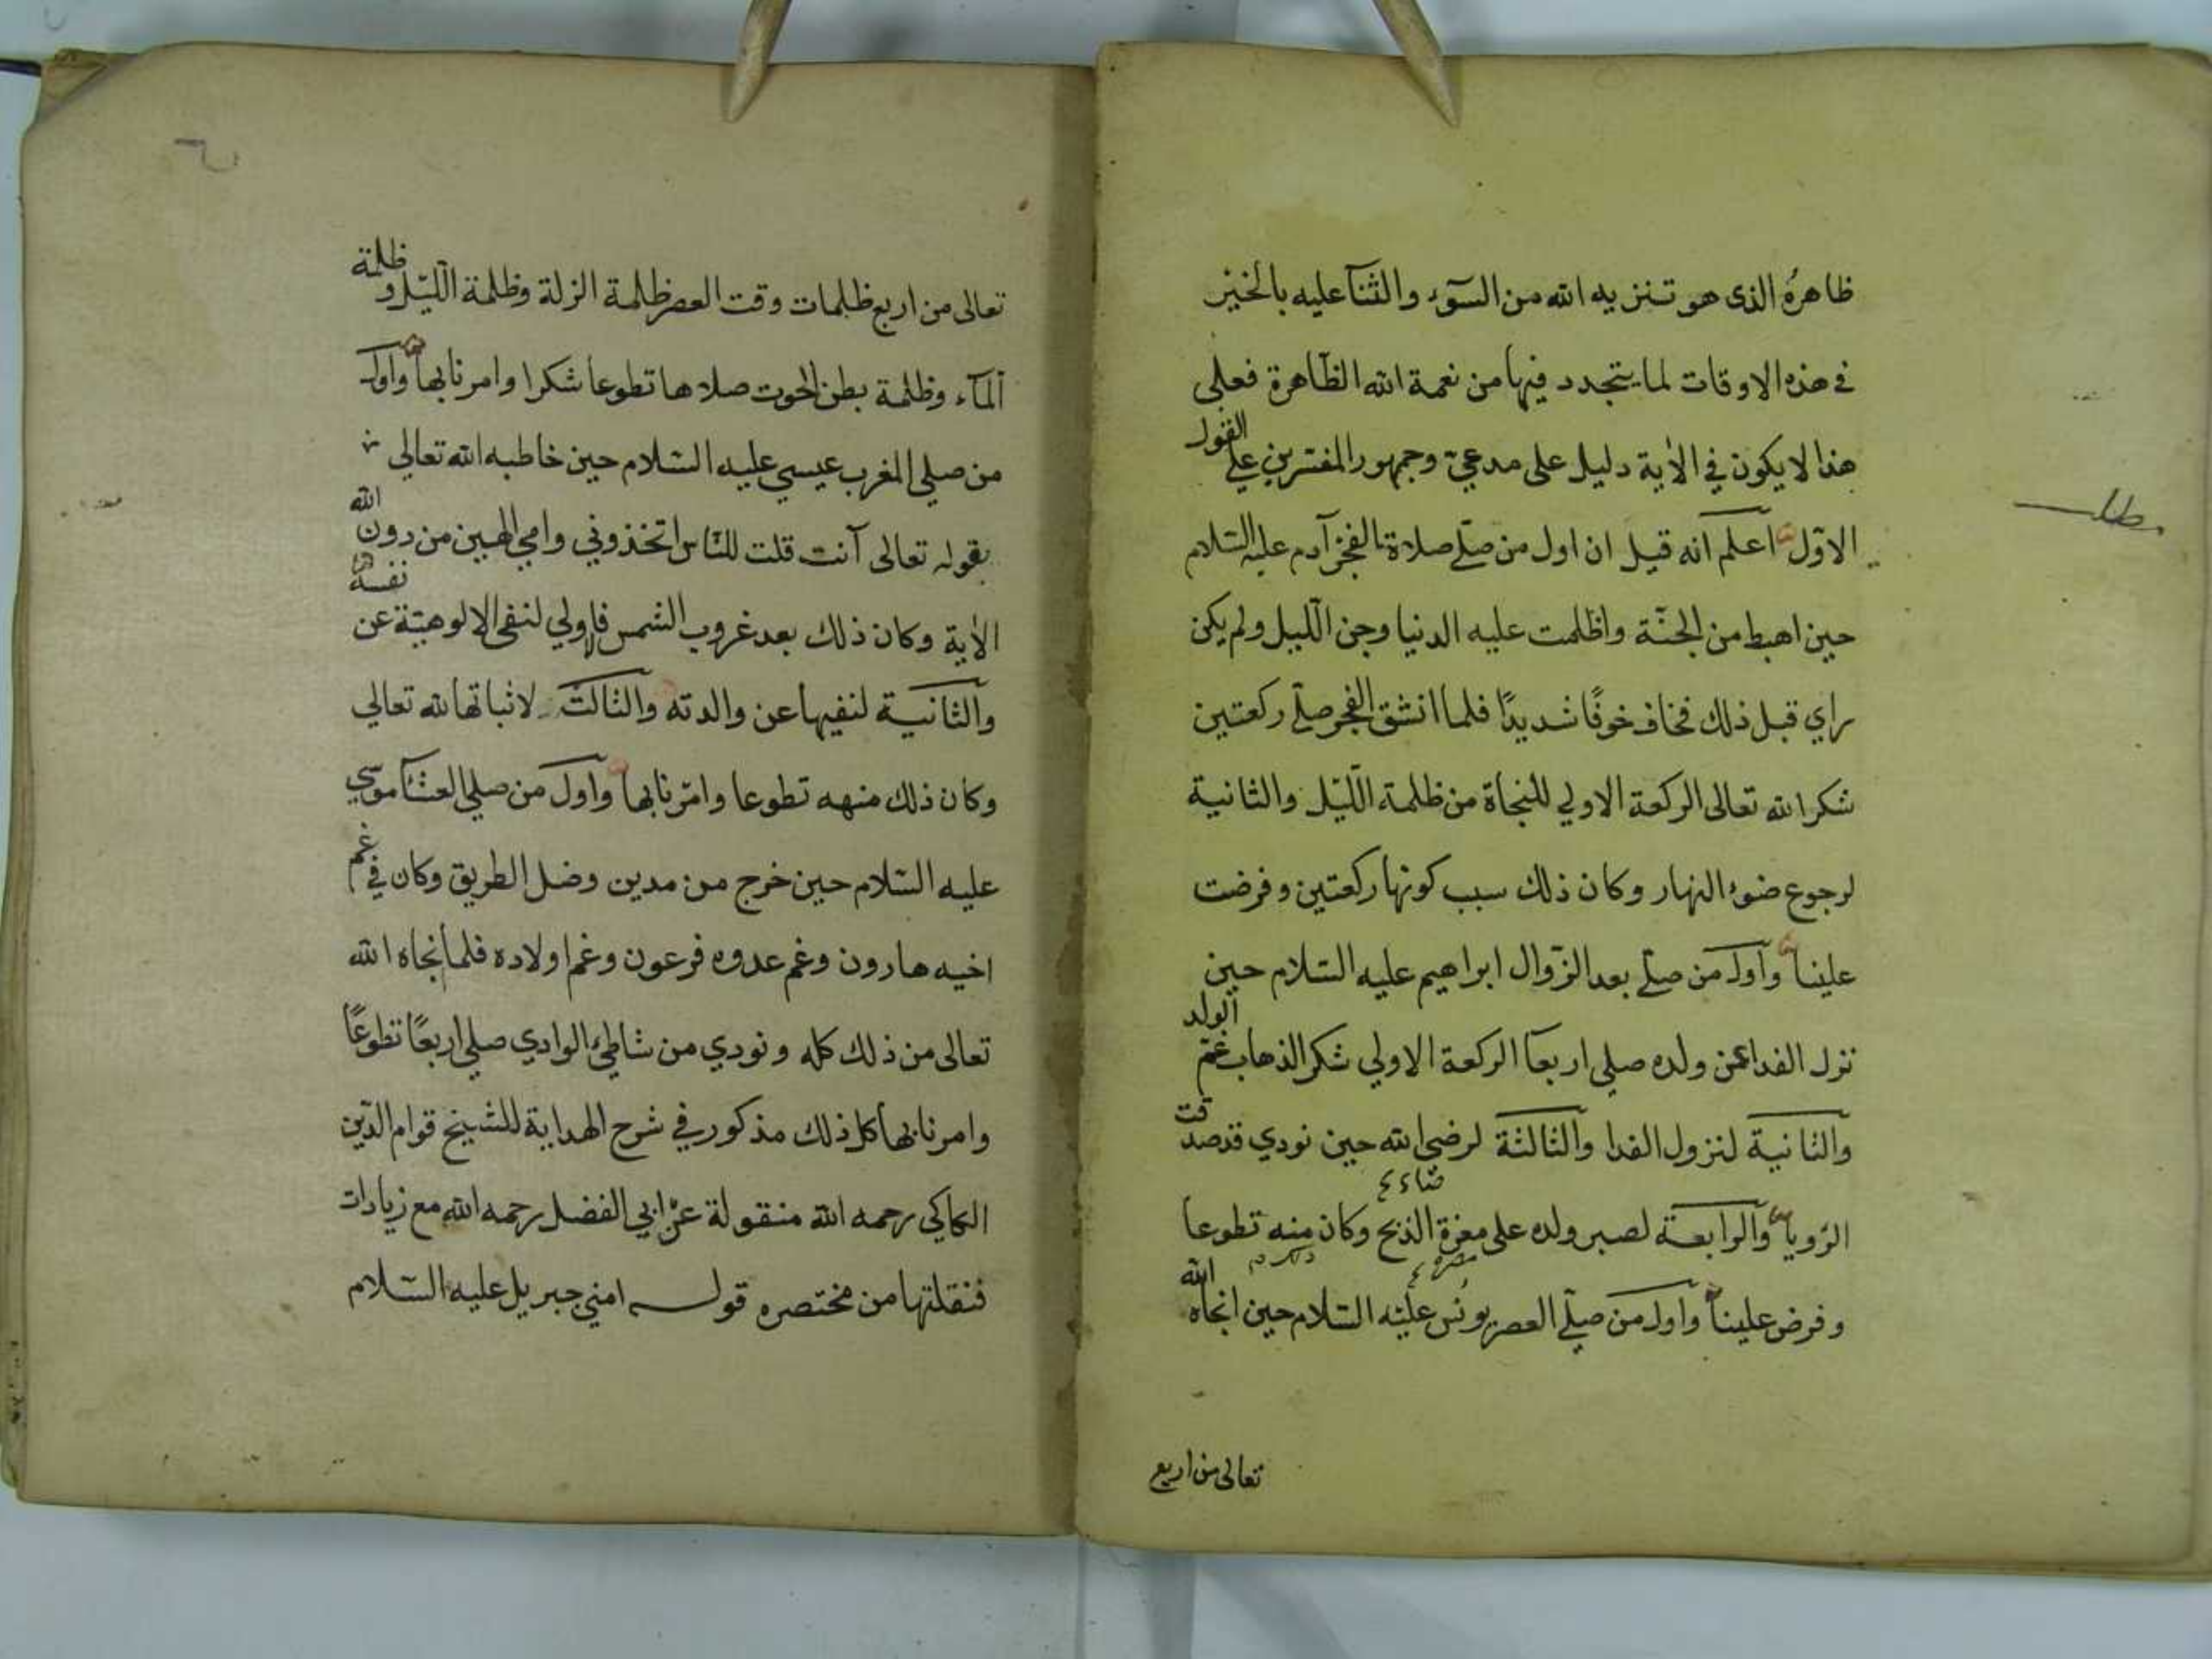 ظاهرُه الذى هو تنزيه الله من السوٓء والثنآ عليه بالخير
في هذه الاوقات لما يتجدد فيها من نعمة الله الظاهرة فعلى
هذا لا يكون في الاٰية دليل على مدعيّ وجمهور المفسرين على القول
الاوّل اعلم انه قيل ان اول من صلّى صلاة الفجر آدم عليه السّلام
حين اهبط من الجنّة واظلمت عليه الدنيا وجن اللّيل ولم يكن
راي قبل ذلك فخاف خوفًا شديدًا فلما انشق الفجر صلّى ركعتين
شكرا لله تعالى الركعة الاولي للنجاة من ظلمة اللّيل والثانية
لرجوع ضوء النهار وكان ذلك سبب كونها ركعتين وفرضت
علينا واول من صلّى بعد الزّوال ابراهيم عليه السّلام حين
نزل الفدا عن ولده صلى اربعا الركعة الاولي شكر الذهاب غمّ الولد
والثانية لنزول الفدا والثالثة لرضى الله حين نودي قد صدقت
الرّويا والرابعة لصبر ولده على معزة الذبح وكان منه تطوعا
وفرض علينا واول من صلّى العصر يونُس عليْه السّلام حين انجاه الله
تعالى من اربع
مطلب
تعالى من اربع ظلمات وقت العصر ظلمة الزلة وظلمة اللّيل وظلمة
المآء وظلمة بطن الحوت صلاها تطوعا شكرا وامرنا بها واول
من صلى المغرب عيسي عليه السّلام حين خاطبه الله تعالي
بقوله تعالى آنت قلت للنّاس اتخذوني وامي الهين من دون الله
الاٰية وكان ذلك بعد غروب الشمس فالاولي لنفى الالوهيّة عن نفسه
والثانية لنفيها عن والدته والثالث لاثباتها لله تعالي
وكان ذلك منهه تطوعا وامرنا بها واول من صلى العشآ موسي
عليه السّلام حين خرج من مدين وضل الطريق وكان في غم
اخيه هارون وغم عدوه فرعون وغم اولاده فلما نجاه الله
تعالى من ذلك كله ونودي من شاطئ الوادي صلى اربعًا تطوعًا
وامرنا بها كل ذلك مذكور في شرح الهداية للشيخ قوام الدّين
الكاكي رحمه الله منقولة عن ابي الفضل رحمه الله مع زيادات
فنقلتها من مختصره قوله امني جبريل عليه السّلام